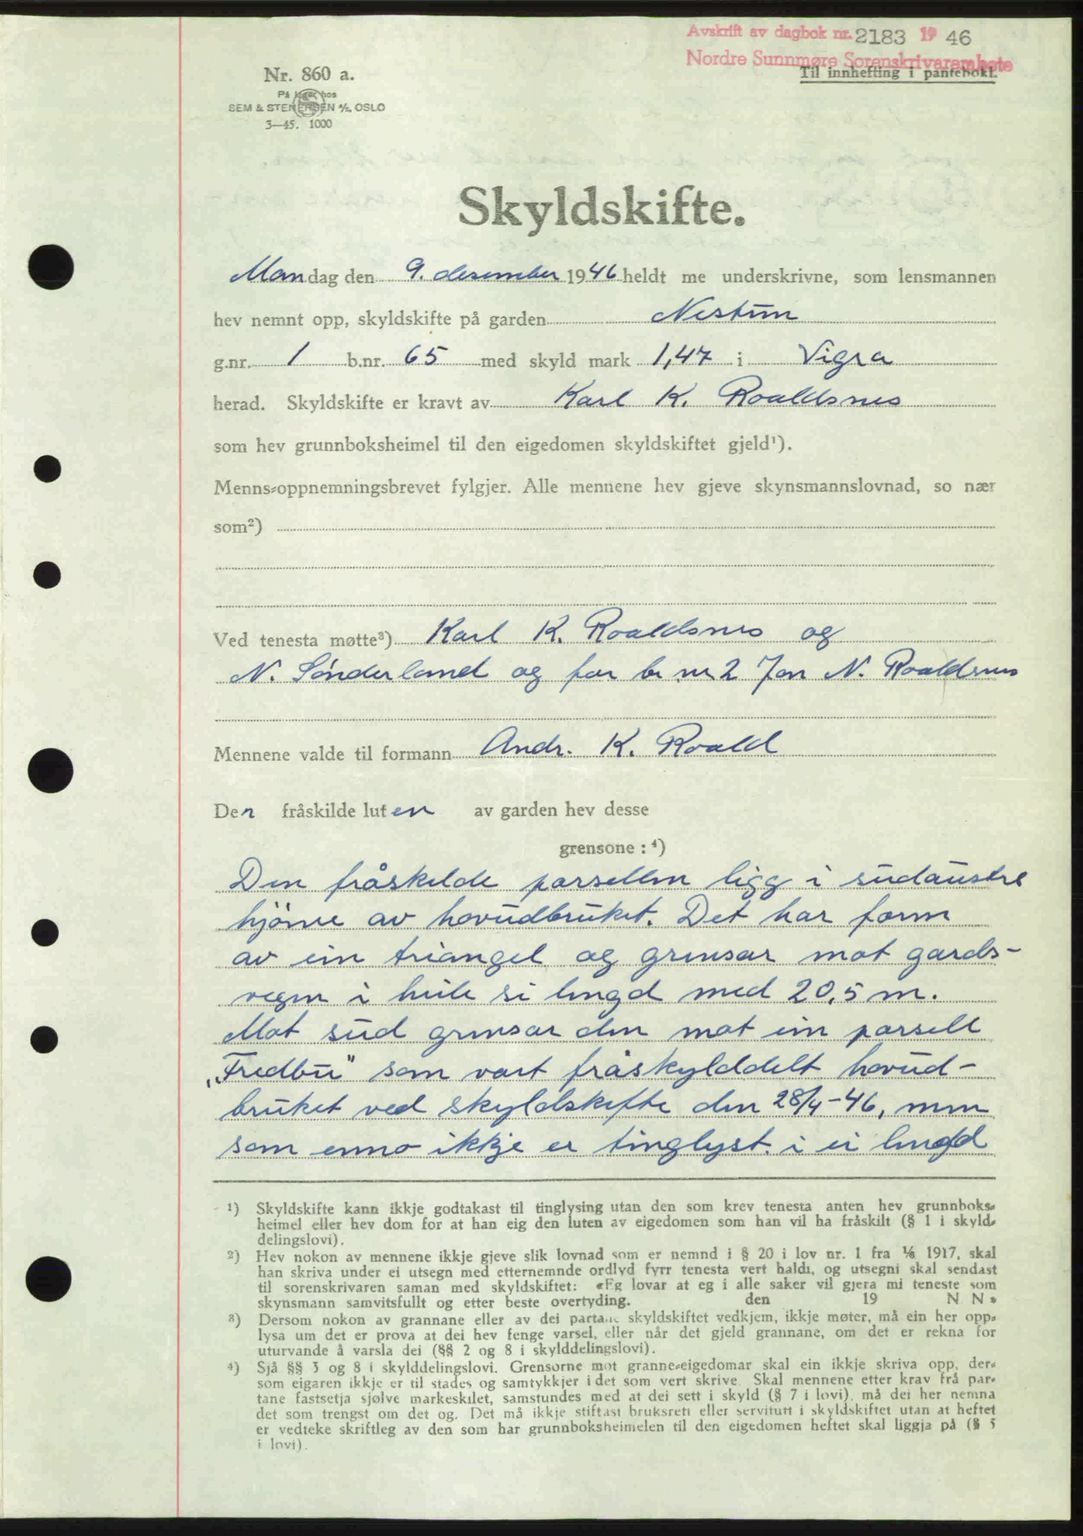 Avskrift av dagbok nr. 2183 19 46
Nordre Sunnmøre Sorenskrivarembete
Til innhefting i pantebokk.
Nr. 860 a.
På lager hos
SEM & STENERSEN A/S, OSLO
3—45. 1000
Skyldskifte.
Mandag den 9. desember 1946 heldt me underskrivne, som lensmannen
hev nemnt opp, skyldskifte på garden Nestun
g.nr. 1 b.nr. 65 med skyld mark 1,47 i Vigra
herad. Skyldskifte er kravt av Karl K. Roaldsnes
som hev grunnboksheimel til den eigedomen skyldskiftet gjeld¹).
Menns-oppnemningsbrevet fylgjer. Alle mennene hev gjeve skynsmannslovnad, so nær
som²)
Ved tenesta møtte³) Karl K. Roaldsnes og
N. Sønderland og for br nr 2 Jon N. Roaldsnes
Mennene valde til formann Andr. K. Roald
Den fråskilde luten av garden hev desse
grensone : ⁴)
Den fråskilde parsellen ligg i sudaustre
hjørne av hovudbruket. Det har form
av ein triangel og grensar mot gards-
vegen i heile si lengd med 20,5 m.
Mot sud grensar den mot ein parsell
„Fredbu" som vart fråskylddelt hovud-
bruket ved skyldskifte den 28/4-46, men
som enno ikkje er tinglyst. i ei lengd
¹) Skyldskifte kann ikkje godtakast til tinglysing utan den som krev tenesta anten hev grunnboks-
heimel eller hev dom for at han eig den luten av eigedomen som han vil ha fråskilt (§ 1 i skyld-
delingslovi).
²) Hev nokon av mennene ikkje gjeve slik lovnad som er nemnd i § 20 i lov nr. 1 fra 1/6 1917, skal
han skriva under ei utsegn med etternemnde ordlyd fyrr tenesta vert haldi, og utsegni skal sendast
til sorenskrivaren saman med skyldskiftet: «Eg lovar at eg i alle saker vil gjera mi teneste som
skynsmann samvitsfullt og etter beste overtyding. den 19 N N »
³) Dersom nokon av grannane eller av dei partane skyldskiftet vedkjem, ikkje møter, må ein her opp-
lysa um det er prova at dei hev fenge varsel, eller når det gjeld grannane, om det er rekna for
uturvande å varsla dei (§§ 2 og 8 i skylddelingslovi).
⁴) Sjå §§ 3 og 8 i skylddelingslovi. Grensorne mot granne-eigedomar skal ein ikkje skriva opp, der-
som eigaren ikkje er til stades og samtykkjer i det som vert skrive. Skal mennene etter krav frå par-
tane fastsetja sjølve markeskilet, samstundes med at dei sett i skyld (§ 7 i lovi), må dei her nemna
det som trengst om det og. Det må ikkje stiftast bruksrett eller servitutt i skyldskiftet utan at heftet
er vedteke skriftleg av den som har grunnboksheimelen til den eigedomen heftet skal liggja på (§ 5
i lovi).